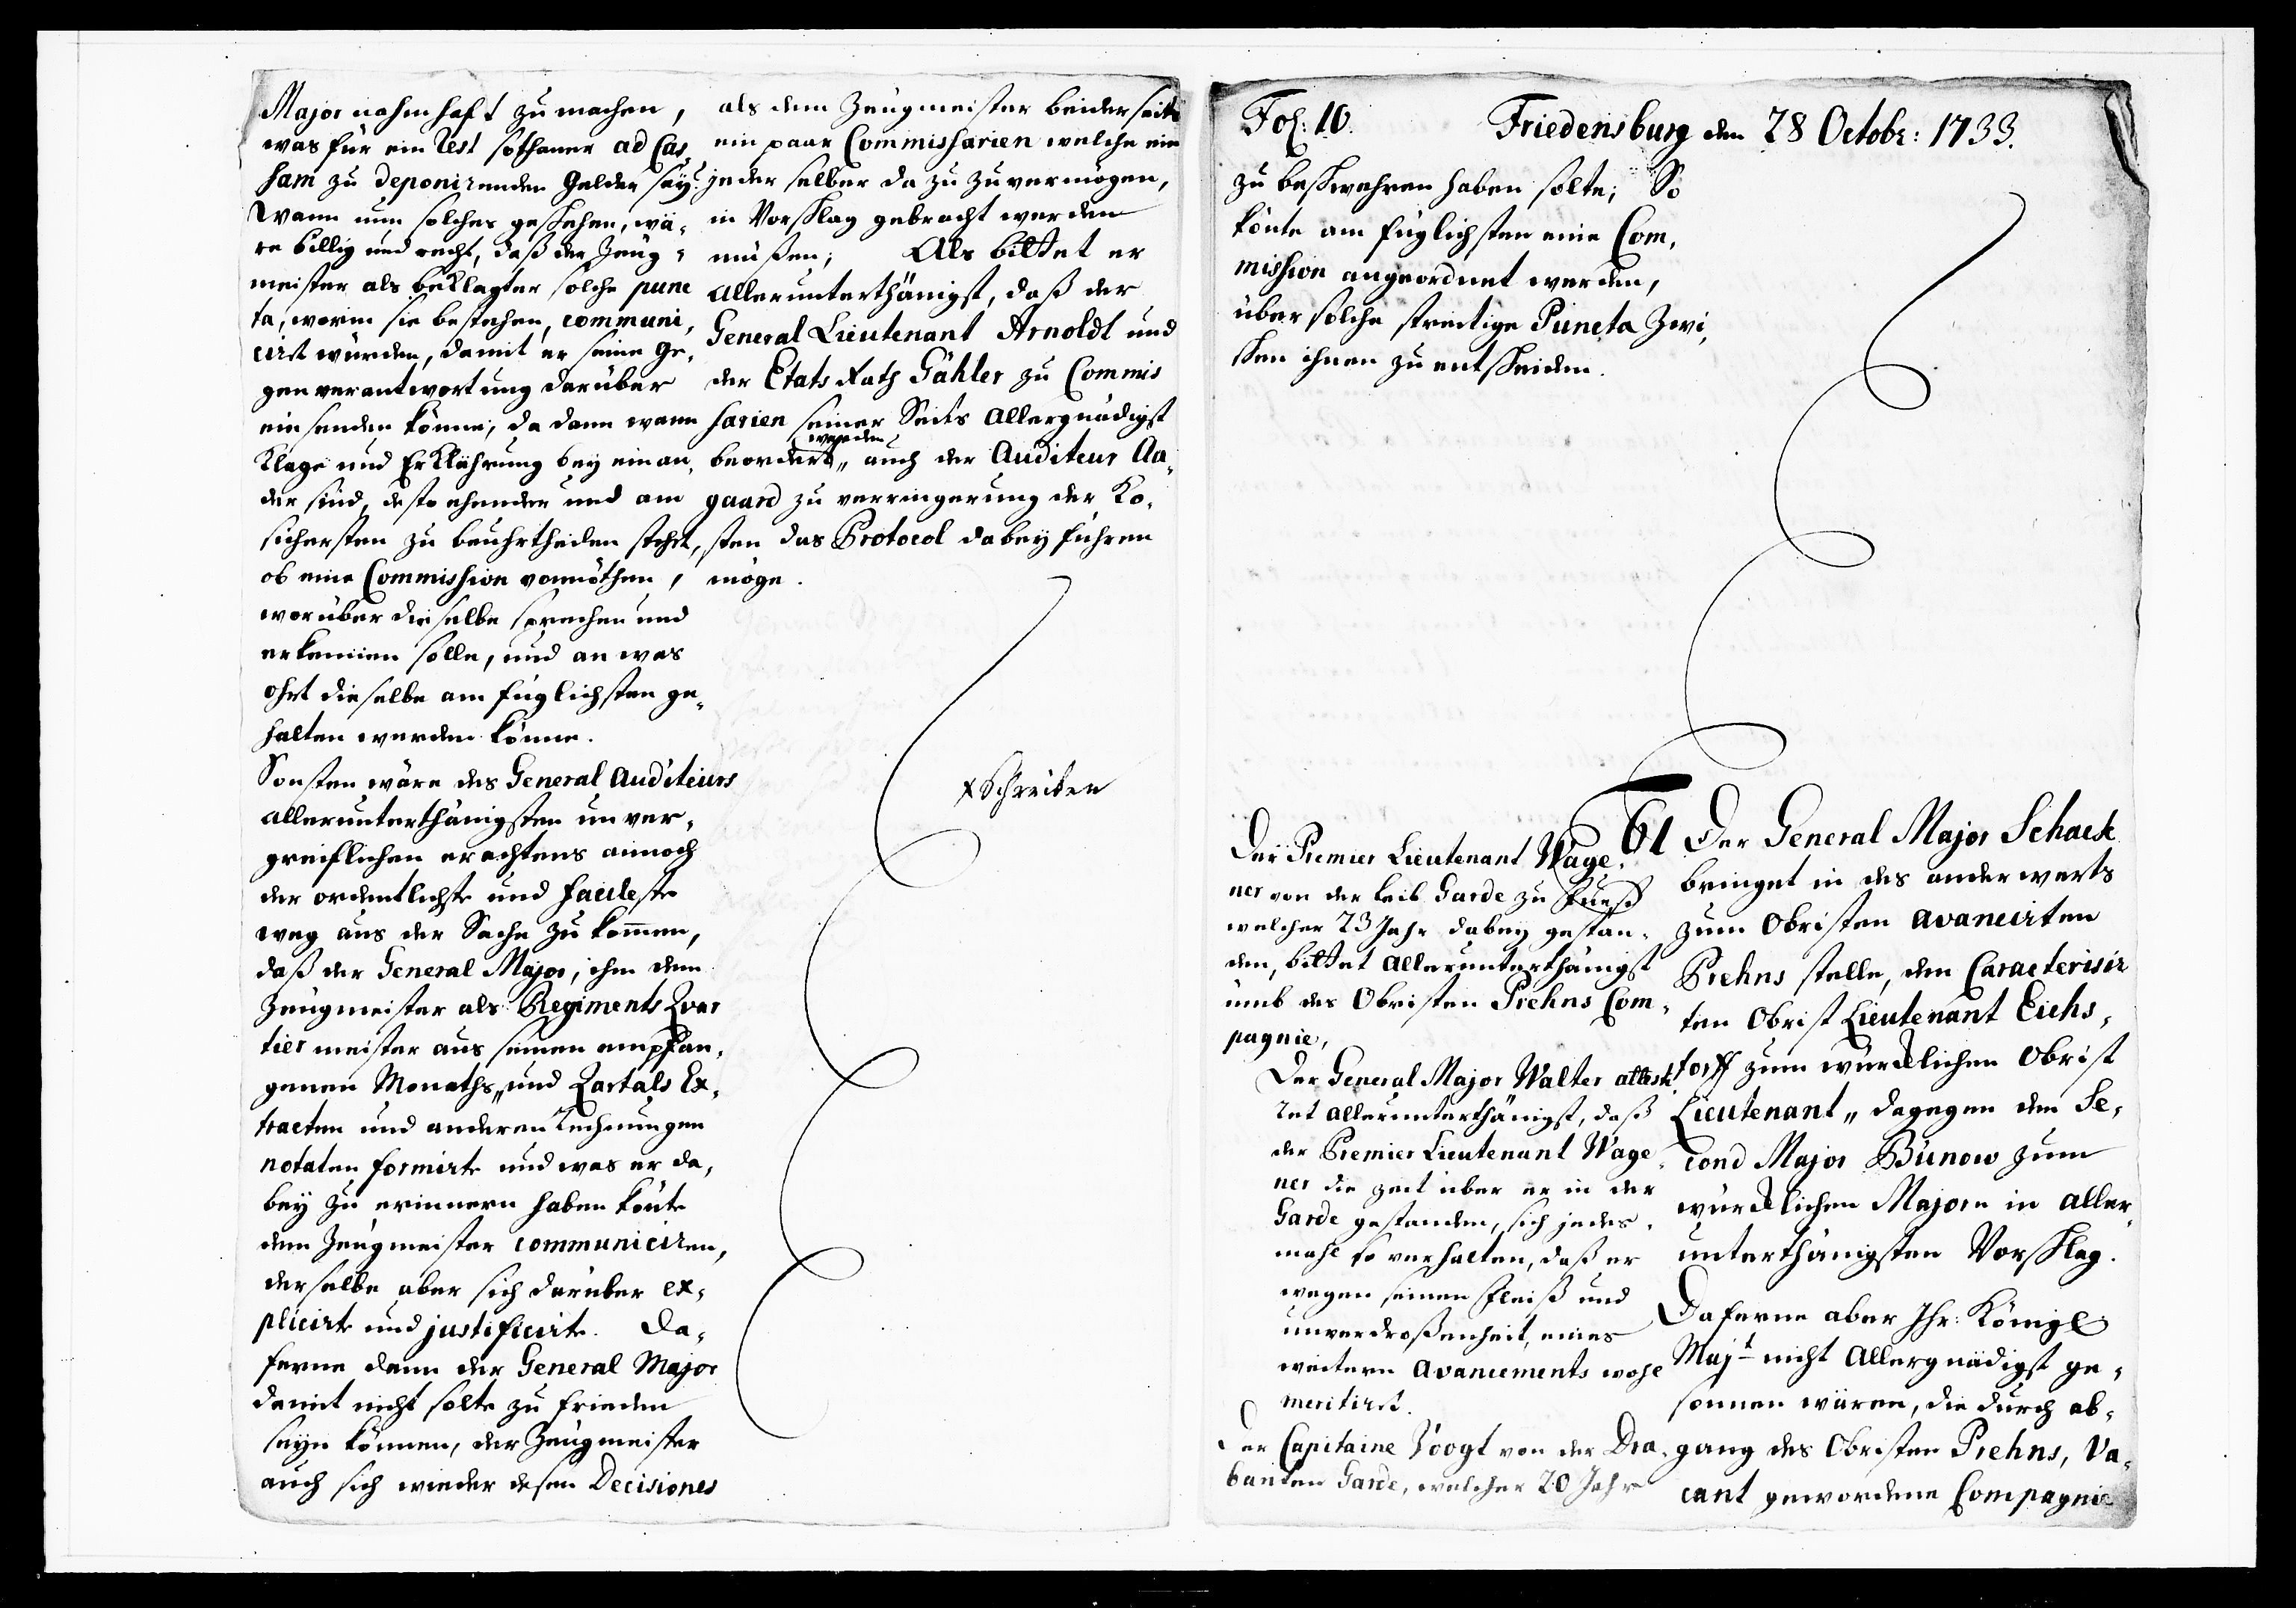 Major nahmhaft zu machen,
was für ein Rest sothaner ad Cas,
sam zu deponirenden Gelder seÿ?
Wann nun solches geschehen, wä,
re billig und recht, daß der Zeug,
meister als beklagter solche punc
ta, worin sie bestehen, communi,
cirt würden, damit er seine Ge,
genverantwortung darüber
einsenden könne; da dann wann
Klage und Erklährung beÿ einan,
der sind, desto ehender und am
sichersten zu beuhrtheilen stehet,
ob eine Commission vonnöthen,
worüber dieselbe sprechen und
erkennen solle, und an was
ohrt dieselbe am füglichsten ge,
halten werden könne.
Sonsten wäre des General Auditeurs
allerunterthänigsten unver,
greiflichen erachtens annoch
der ordentlichste und facileste
weg aus der Sache zu kommen,
daß der General Major, ihm dem
Zeugmeister als Regiments Qvar
tiermeister aus seinen empfan,
genen Monaths,, und Qartals Ex,
tracten und anderen Rechnungen
notaten formirte und was er da,
beÿ zu erinnern haben könte
dem Zeugmeister communiciren,
derselbe aber sich darüber ex,
plicirte und justificirte. Da,
ferne dann der General Major
damit nicht solte zu frieden
seÿn können, der Zeugmeister
auch sich wieder deßen Decisiones
als dem Zeugmeister beiderseits
ein paar Commissarien welche ein
jeder selber dazu zu vermögen,
in Vorschlag gebracht werden
müßen; Als bittet er
allerunterthänigst, daß der
General Lieutenant Arnoldt und
der Etats Rath Gähler zu Commis
sarien seiner Seits Allergnädigst
werden
beordert,, auch der Auditeur Aa,
gaard zu verringerung der Ko,
sten das Protocol dabeÿ führen
möge.
x Schreiben
Fol: 10. Friedensburg den 28 Octobr: 1733.
zu beschwehren haben solte; So
könte am füglichsten eine Com,
mission angeordnet werden,
über solche streitige Puncta Zwi,
schen ihnen zu entscheiden.
Der Premier Lieutenant Wage,
ner von der Leib Garde zu Fueß
welcher 23 Jahr dabeÿ gestan,
den, bittet Allerunterthänigst
umb des Obristen Prehns Com,
pagnie,
Der General Major Walter attesti
ret allerunterthänigst, daß
der Premier Lieutenant Wage,
ner die zeit über er in der
Garde gestanden, sich jedes,
mahl so verhalten, daß er
wegen seinen Fleiß und
unverdroßenheit, eines
weitern Avancements wohl
meritirt.
Der Capitaine Voogt von der Dra,
banten Garde, welcher 20 Jahr
61 Der General Major Schack
bringet in des anderwerts
zum Obristen avancirten
Prehns stelle, den Caracterisir
ten Obrist Lieutenant Eichs,
torff zum würcklichen Obrist
Lieutenant,, dagegen den Se,
cond Major Bünow zum
würcklichen Majorn in aller,
unterthänigsten Vorschlag.
Daferne aber Ihr: Königl
Majt nicht Allergnädigst ge,
sonnen wären, die durch ab,
gang des Obristen Prehns, Va,
cant gewordene Compagnie